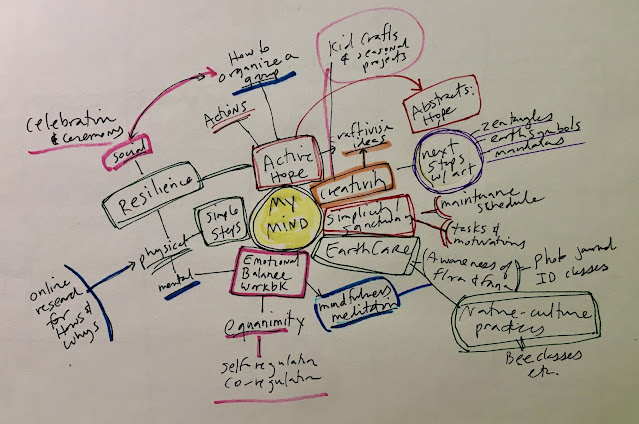 Kid Crafts
& seasonal
projects
How to
organize a
group
Celebration
& ceremony
Actions
Abstracts:
Hope
Social
craftivism
ideas
Zentangles
earth symbols
mandalas
Active
Hope
next
steps
w/ art
Resilience
Creativity
My
Mind
Simple
Steps
Simplicity
Sanctuary
maintenance
schedule
tasks &
motivations
physical
EarthCare
Emotional
Balance
Workbk
Awareness of
flora & fauna
Photo journal
ID classes
online
research
for
Hows &
Whys
mental
mindfulness
meditation
Nature-culture
practices
equanimity
Bee classes
etc.
self-regulation
co-regulation